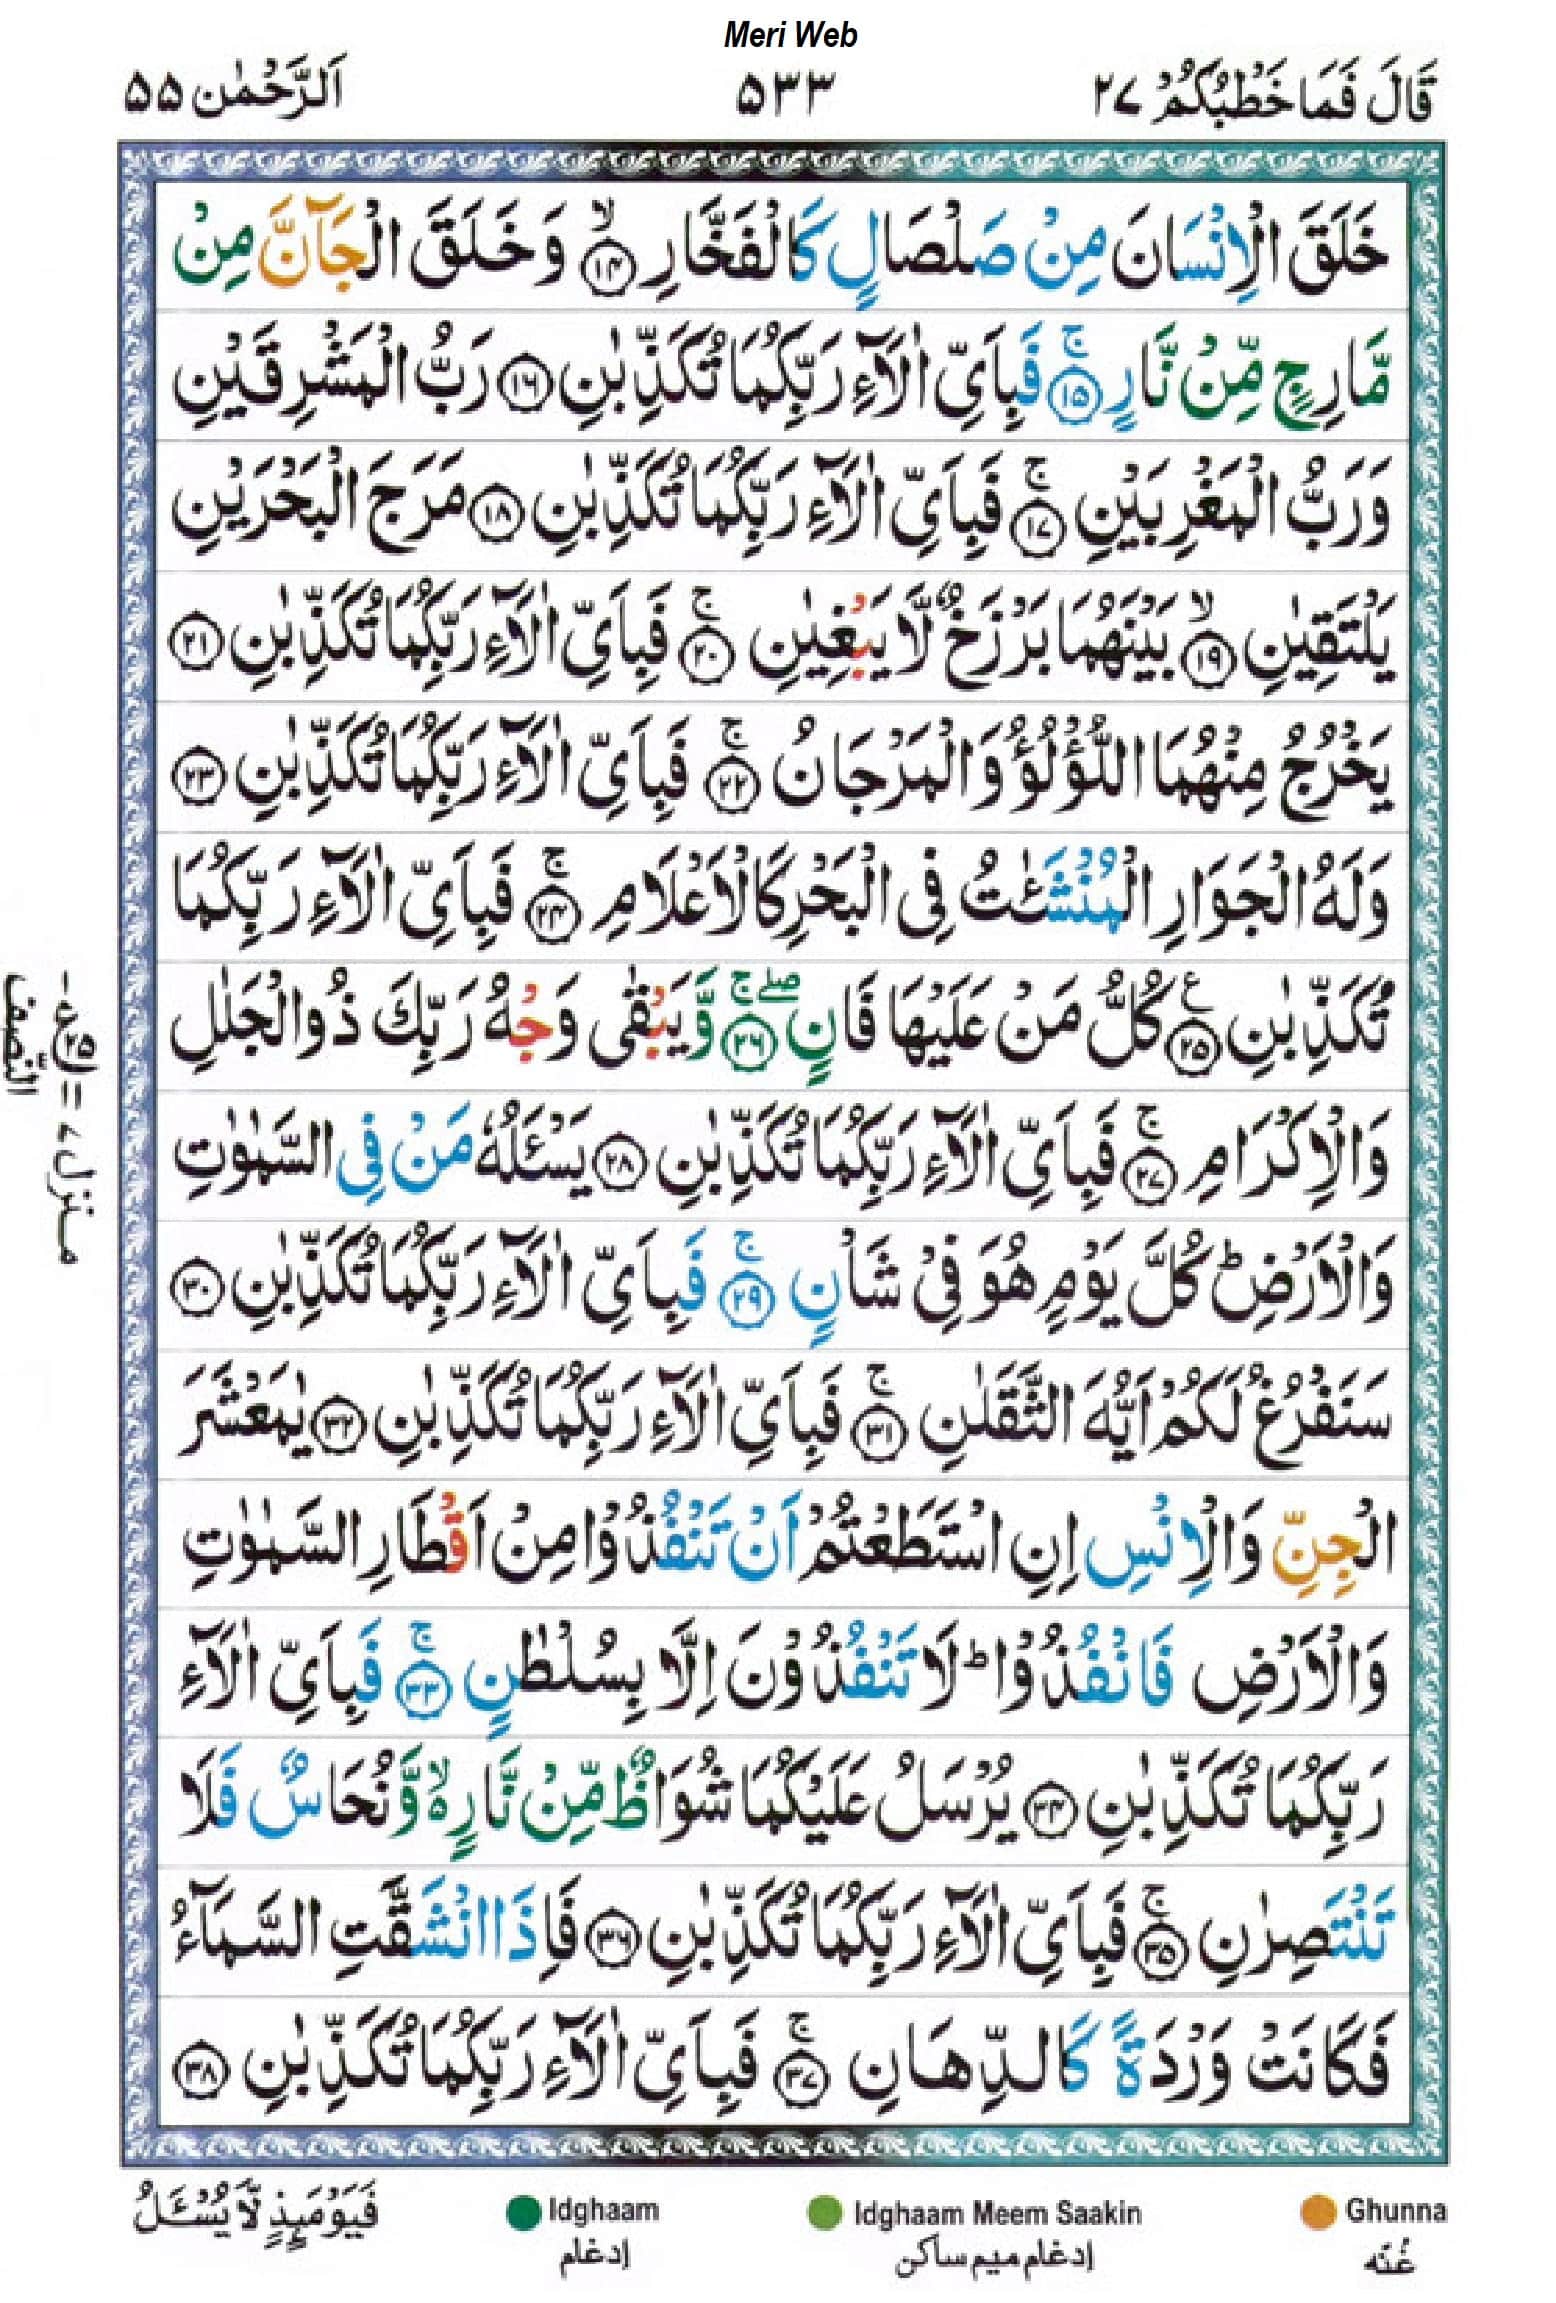 Meri Web
قَالَ فَمَا خَطْبُكُمْ ٢٧ ٥٣٣ اَلرَّحْمٰن ٥٥
خَلَقَ الْاِنْسَانَ مِنْ صَلْصَالٍ كَالْفَخَّارِ ۙ﴿١٤﴾ وَ خَلَقَ الْجَآنَّ مِنْ
مَّارِجٍ مِّنْ نَّارٍ ۚ﴿١٥﴾ فَبِاَىِّ اٰلَآءِ رَبِّكُمَا تُكَذِّبٰنِ ﴿١٦﴾ رَبُّ الْمَشْرِقَيْنِ
وَرَبُّ الْمَغْرِبَيْنِ ۚ﴿١٧﴾ فَبِاَىِّ اٰلَآءِ رَبِّكُمَا تُكَذِّبٰنِ ﴿١٨﴾ مَرَجَ الْبَحْرَيْنِ
يَلْتَقِيٰنِ ۙ﴿١٩﴾ بَيْنَهُمَا بَرْزَخٌ لَّا يَبْغِيٰنِ ۚ﴿٢٠﴾ فَبِاَىِّ اٰلَآءِ رَبِّكُمَا تُكَذِّبٰنِ ﴿٢١﴾
يَخْرُجُ مِنْهُمَا اللُّؤْلُؤُ وَالْمَرْجَانُ ۚ﴿٢٢﴾ فَبِاَىِّ اٰلَآءِ رَبِّكُمَا تُكَذِّبٰنِ ﴿٢٣﴾
وَلَهُ الْجَوَارِ الْمُنْشَئٰتُ فِى الْبَحْرِ كَالْاَعْلَامِ ۚ﴿٢٤﴾ فَبِاَىِّ اٰلَآءِ رَبِّكُمَا
تُكَذِّبٰنِ ﴿٢٥﴾ كُلُّ مَنْ عَلَيْهَا فَانٍ ۖۚ﴿٢٦﴾ وَّيَبْقٰى وَجْهُ رَبِّكَ ذُوالْجَلٰلِ
وَالْاِكْرَامِ ۚ﴿٢٧﴾ فَبِاَىِّ اٰلَآءِ رَبِّكُمَا تُكَذِّبٰنِ ﴿٢٨﴾ يَسْئَلُهٗ مَنْ فِى السَّمٰوٰتِ
وَالْاَرْضِ ؕ كُلَّ يَوْمٍ هُوَ فِىْ شَاْنٍ ۚ﴿٢٩﴾ فَبِاَىِّ اٰلَآءِ رَبِّكُمَا تُكَذِّبٰنِ ﴿٣٠﴾
سَنَفْرُغُ لَكُمْ اَيُّهَ الثَّقَلٰنِ ۚ﴿٣١﴾ فَبِاَىِّ اٰلَآءِ رَبِّكُمَا تُكَذِّبٰنِ ﴿٣٢﴾ يٰمَعْشَرَ
الْجِنِّ وَالْاِنْسِ اِنِ اسْتَطَعْتُمْ اَنْ تَنْفُذُوْا مِنْ اَقْطَارِ السَّمٰوٰتِ
وَالْاَرْضِ فَانْفُذُوْا ؕ لَا تَنْفُذُوْنَ اِلَّا بِسُلْطٰنٍ ۚ﴿٣٣﴾ فَبِاَىِّ اٰلَآءِ
رَبِّكُمَا تُكَذِّبٰنِ ﴿٣٤﴾ يُرْسَلُ عَلَيْكُمَا شُوَاظٌ مِّنْ نَّارٍ ۙ۬ وَّنُحَاسٌ فَلَا
تَنْتَصِرٰنِ ۚ﴿٣٥﴾ فَبِاَىِّ اٰلَآءِ رَبِّكُمَا تُكَذِّبٰنِ ﴿٣٦﴾ فَاِذَا انْشَقَّتِ السَّمَآءُ
فَكَانَتْ وَرْدَةً كَالدِّهَانِ ۚ﴿٣٧﴾ فَبِاَىِّ اٰلَآءِ رَبِّكُمَا تُكَذِّبٰنِ ﴿٣٨﴾
النّصف
منزل ٧
فَيَوْمَئِذٍ لَّا يُسْئَلُ
Idghaam Idghaam Meem Saakin Ghunna
إدغام إدغام ميم ساكن غُنّه